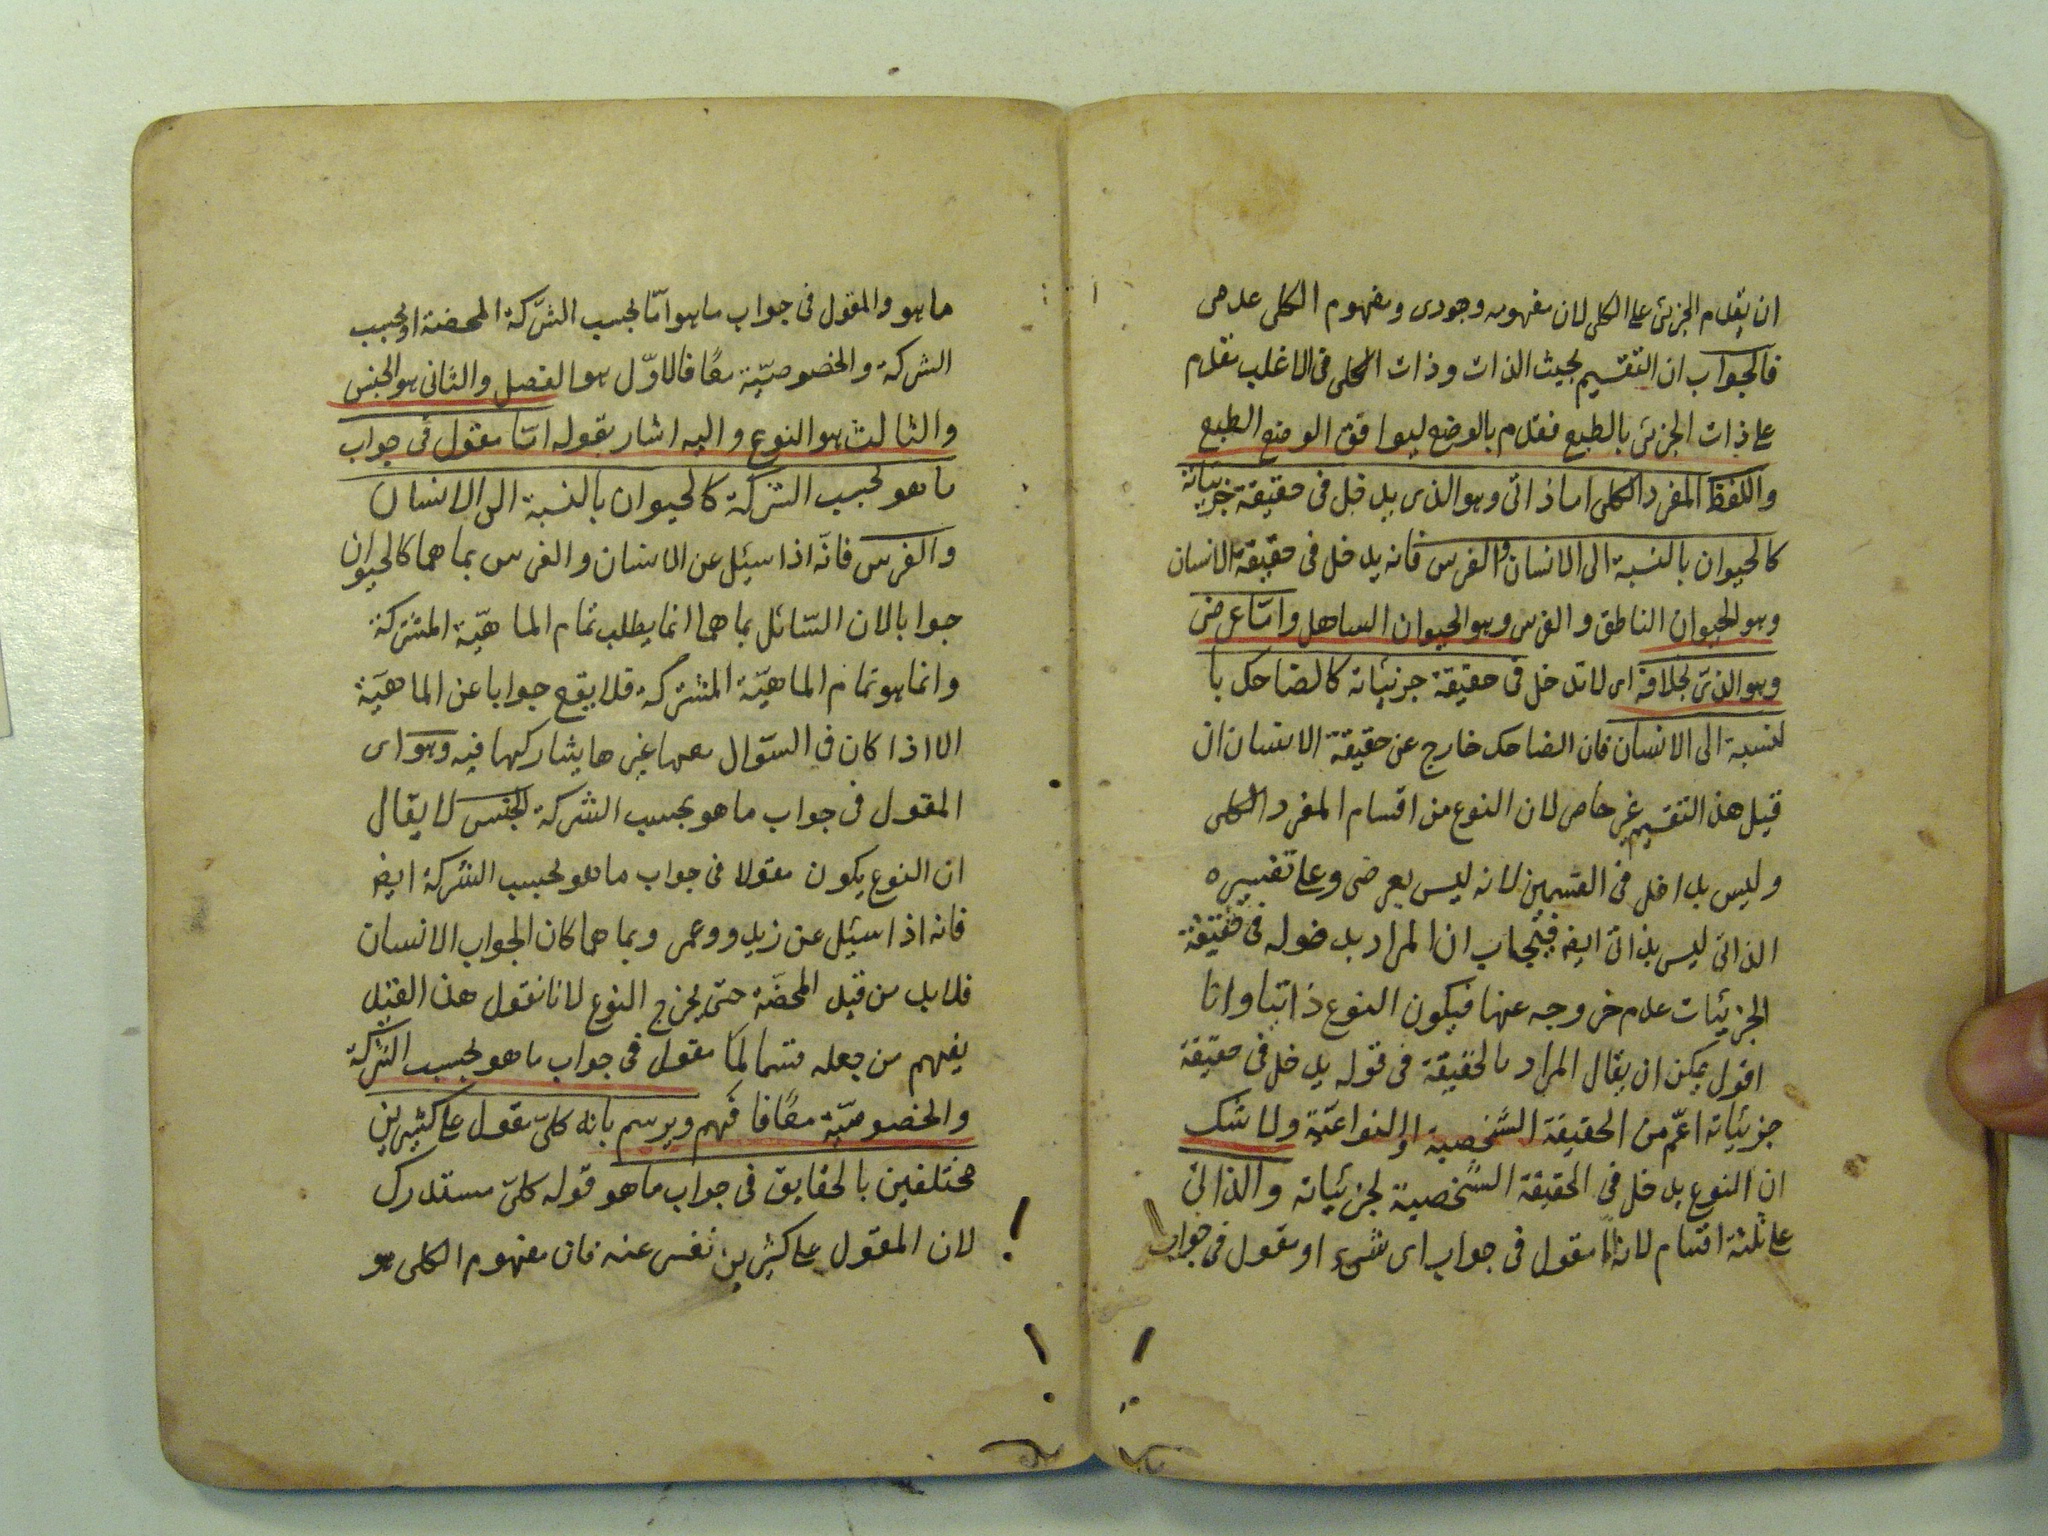 ان يقدم الجزئى على الكلى لان مفهومه وجودى ومفهوم الكلى عدمى
فالجواب ان التقسيم بحيث الذات وذات الكلى فى الاغلب تقدم
على ذات الجزئى بالطبع فقدم بالوضع ليوافق الوضع الطبع
واللفظ المفرد الكلى اما ذاتى وهو الذى يدخل فى حقيقة جزئياته
كالحيوان بالنسبة الى الانسان والفرس فانه يدخل فى حقيقة الانسان
وهو الحيوان الناطق والفرس وهو الحيوان الساهل واما عرضى
وهو الذى بخلافه اى لا تدخل فى حقيقة جزئياته كالضاحك با
لنسبة الى الانسان فان الضاحك خارج عن حقيقة الانسان ان
قيل هذا التقسيم غير حاصر لان النوع من اقسام المفرد الكلى
وليس بداخل فى القسمين لانه ليس بعرضى وعلى تفسيره
الذاتى ليس بذاتى ايضا فيجاب ان المراد بدخوله فى حقيقة
الجزئيات عدم خروجه عنها فيكون النوع ذاتيا وانا
اقول يمكن ان يقال المراد بالحقيقة فى قوله يدخل فى حقيقة
جزئياته اعمّ من الحقيقة الشخصية او النواعيّة ولا شك
ان النوع يدخل فى الحقيقة الشخصية لجزئياته والذاتى
على ثلثة اقسام لانه اما مقول فى جواب اى شىء او مقول فى جواب
ما هو والمقول فى جواب ما هو امّا بحسب الشّركة المحضة او بحسب
الشركة والخصوصيّة معًا فالاوّل هو الفصل والثانى هو الجنس
والثالث هو النوع واليه اشار بقوله امّا مقول فى جواب
ما هو بحسب الشركة كالحيوان بالنسبة الى الانسان
والفرس فانّه اذا سيئل عن الانسان والفرس بما هما كالحيوان
جوابا لان السّائل بما هما انما يطلب تمام الماهيّة المشتركة
وانما هو تمام الماهيّة المشتركة فلا يقع جوابا عن الماهيّة
الا اذا كان فى السّوال معها غيرها يشاركها فيه وهو اى
المقول فى جواب ما هو بحسب الشركة الجنس لا يقال
ان النوع يكون مقولا فى جواب ما هو بحسب الشركة ايضا
فانه اذا سيئل عن زيد ووعمر وبما هما كان الجواب الانسان
فلا بد من قيد المحضّة حتى يخرج النوع لانا نقول هذا القيد
يفهم من جعله قسما لما مقول فى جواب ما هو بحسب الشركة
والخصوصيّة معًا فافهم ويرسم بانه كلىّ مقول على كثيرين
مختلفين بالحقايق فى جواب ما هو قوله كلىّ مستدرك
لان المقول على كثيرين نفس عنه فان مفهوم الكلى هو